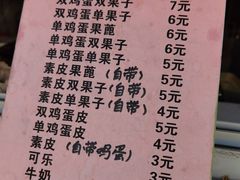 双鸡蛋双果子 7元
双鸡蛋单果子 6元
单鸡蛋果蓖 6元
单鸡蛋双果子 6元
单鸡蛋单果子 5元
素皮果蓖(自带) 5元
素皮双果子(自带) 5元
素皮单果子(自带) 4元
双鸡蛋皮 5元
单鸡蛋皮 4元
素皮(自带鸡蛋) 3元
可乐 3元
牛奶 3元